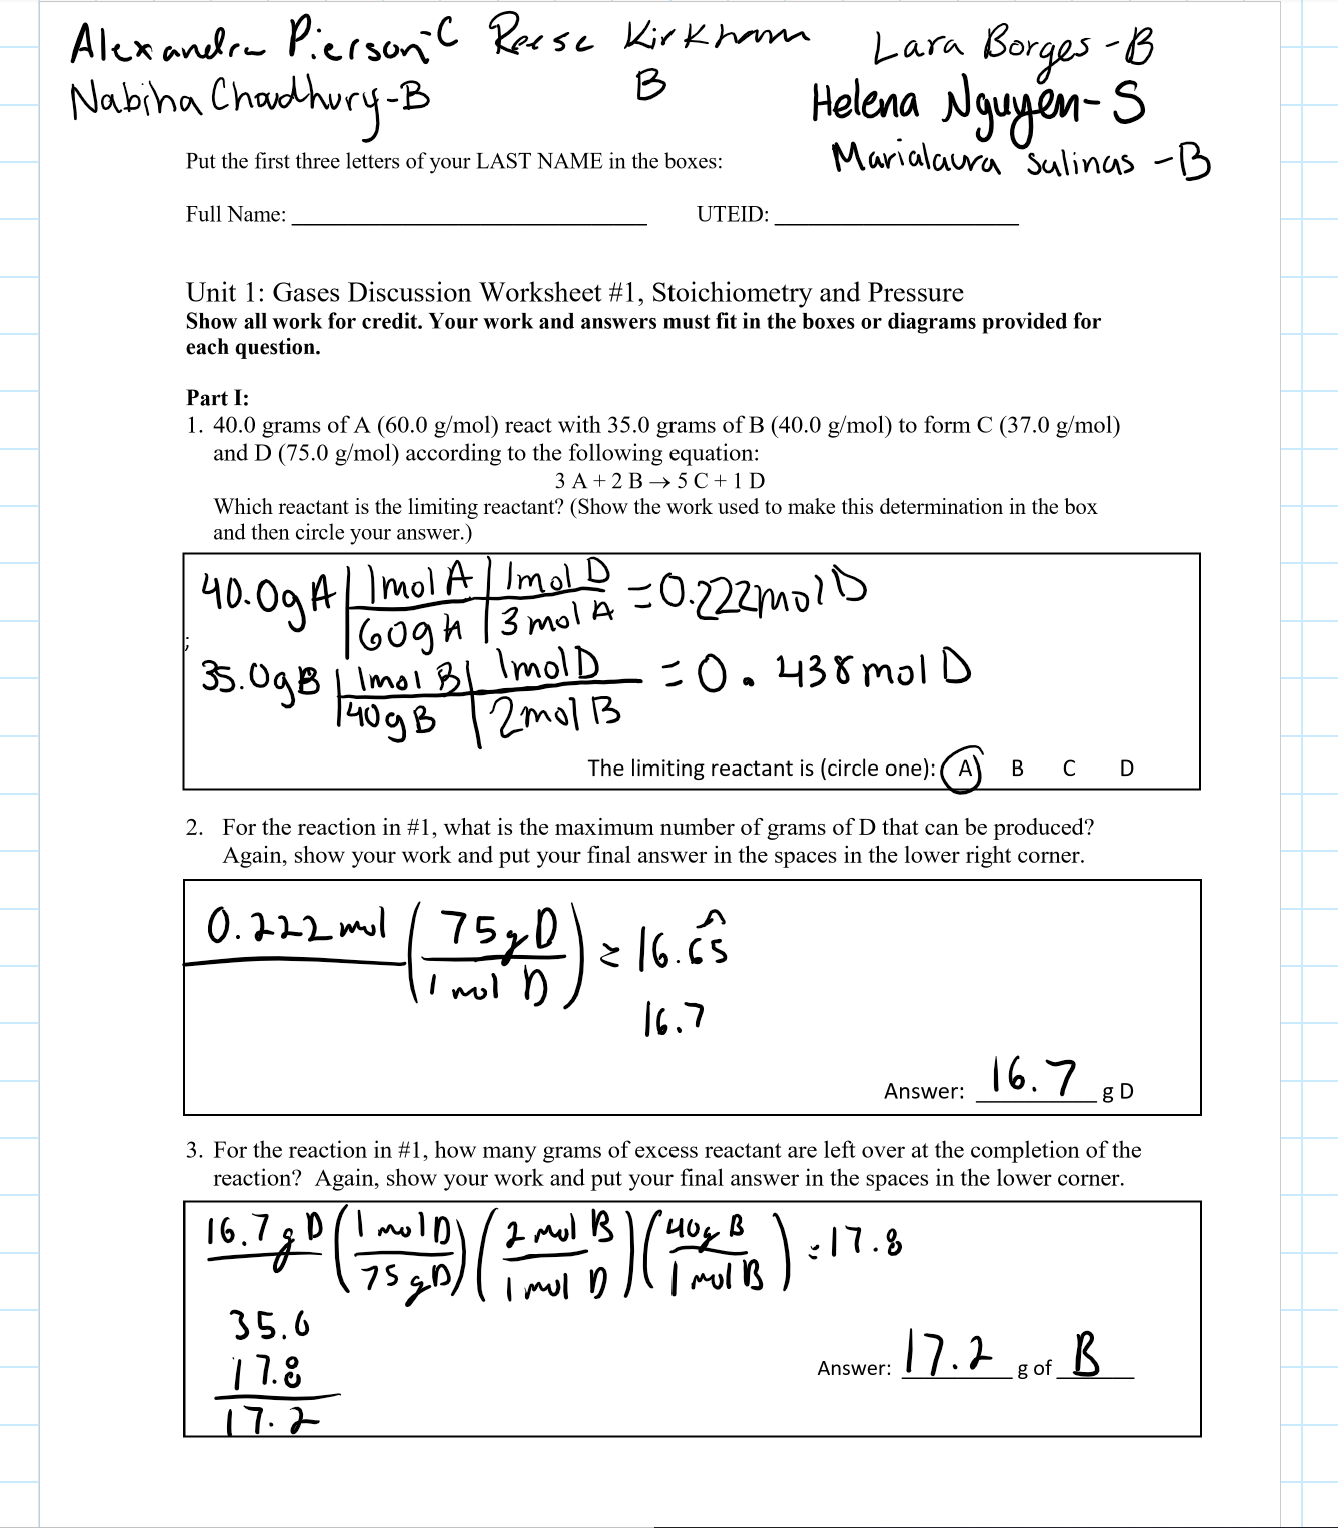 Alexandra Pierson-C Reese Kirkham Lara Borges-B
Nabiha Chowdhury-B B Helena Nguyen-S
Put the first three letters of your LAST NAME in the boxes: Marialaura Salinas-B
Full Name: UTEID:
Unit 1: Gases Discussion Worksheet #1, Stoichiometry and Pressure
Show all work for credit. Your work and answers must fit in the boxes or diagrams provided for
each question.
Part I:
1. 40.0 grams of A (60.0 g/mol) react with 35.0 grams of B (40.0 g/mol) to form C (37.0 g/mol)
and D (75.0 g/mol) according to the following equation:
3 A + 2 B → 5 C + 1 D
Which reactant is the limiting reactant? (Show the work used to make this determination in the box
and then circle your answer.)
40.0g A | 1mol A | 1mol D = 0.222mol D
60g A | 3 mol A
;
35.0g B | 1mol B | 1mol D = 0.438 mol D
40g B | 2mol B
The limiting reactant is (circle one): A B C D
2. For the reaction in #1, what is the maximum number of grams of D that can be produced?
Again, show your work and put your final answer in the spaces in the lower right corner.
0.222 mol ( 75 g D ) = 16.65
1 mol D
16.7
Answer: 16.7 g D
3. For the reaction in #1, how many grams of excess reactant are left over at the completion of the
reaction? Again, show your work and put your final answer in the spaces in the lower corner.
16.7 g D ( 1 mol D ) ( 2 mol B ) ( 40g B ) = 17.8
75 g D 1 mol D 1 mol B
35.0
17.8
Answer: 17.2 g of B
17.2